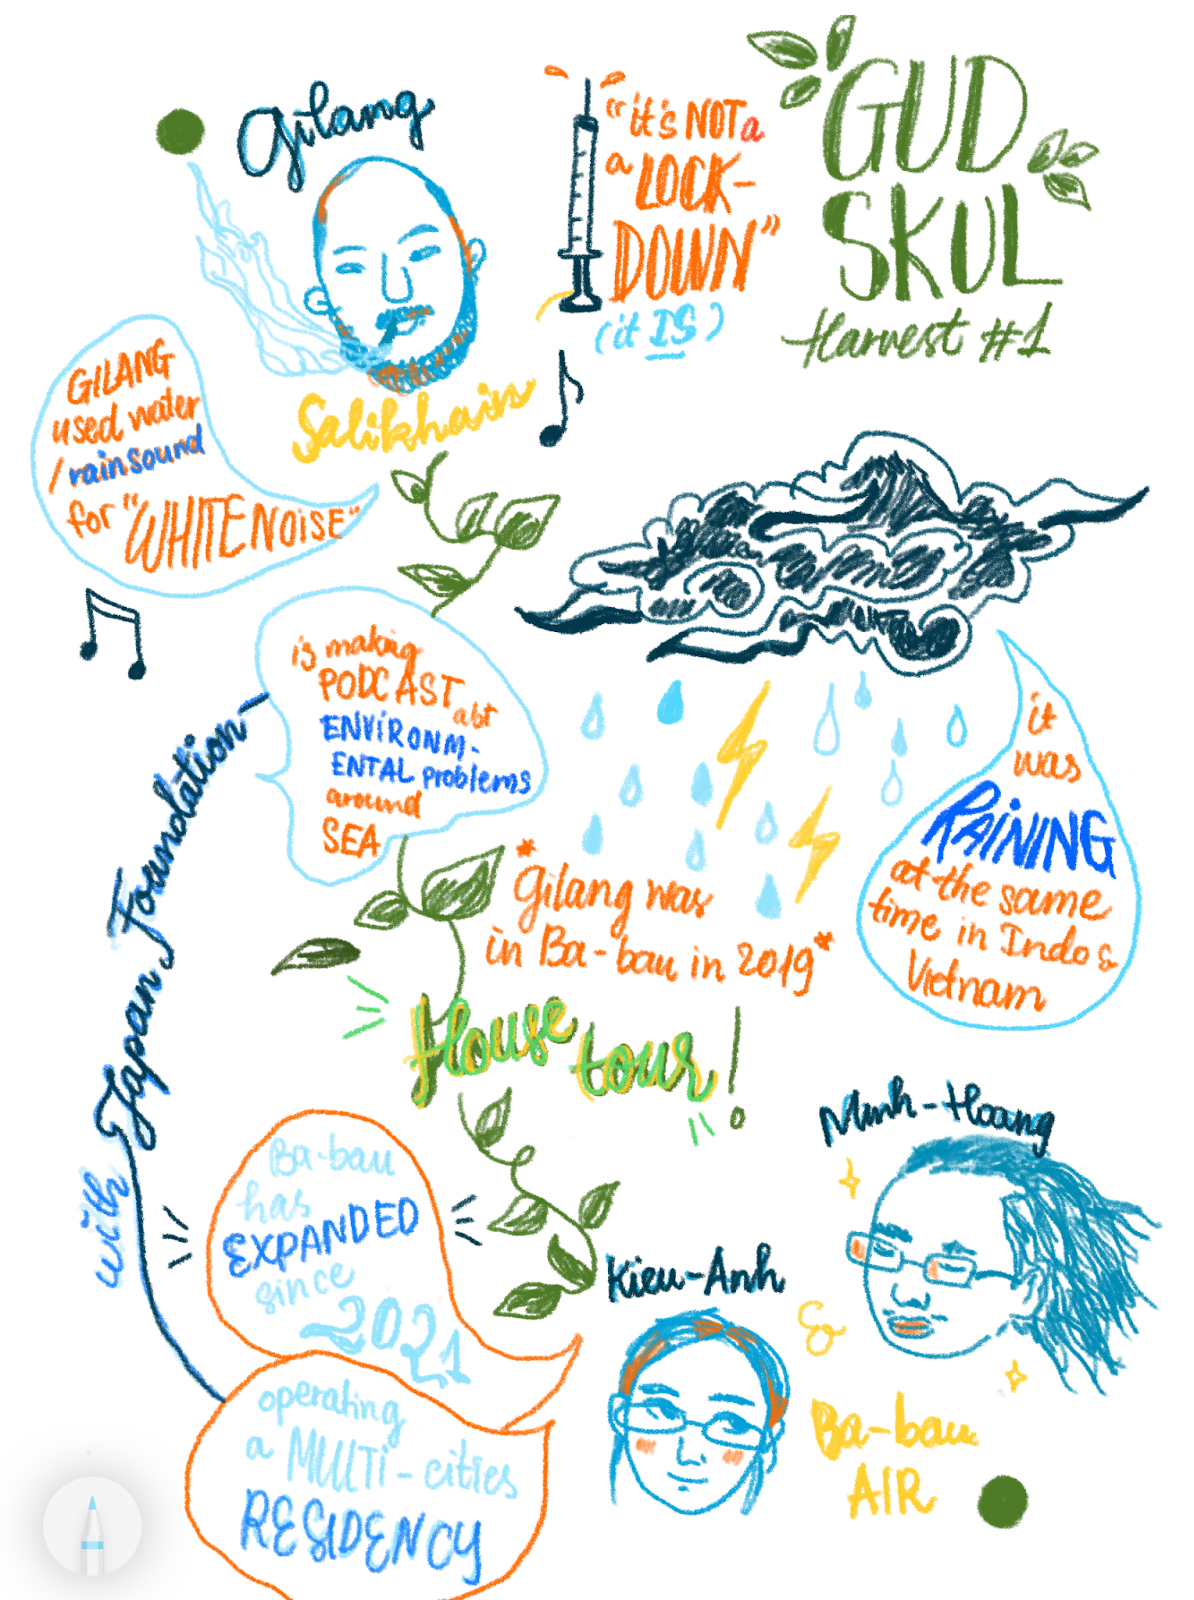 Gilang
"it's NOT a
a LOCK-
DOWN"
(it IS)
GUD
SKUL
Harvest #1
GILANG
used water
/ rain sound
for "WHITE NOISE"
Salikhain
is making
PODCAST abt
ENVIRONM-
ENTAL problems
around
SEA
with Japan Foundation
it
was
RAINING
at the same
time in Indo &
Vietnam
*Gilang was
in Ba-bau in 2019*
House tour!
Ba-bau
has
EXPANDED
since
2021
operating
a MULTI-cities
RESIDENCY
Minh-Hoang
Kieu-Anh
&
Ba-bau
AIR